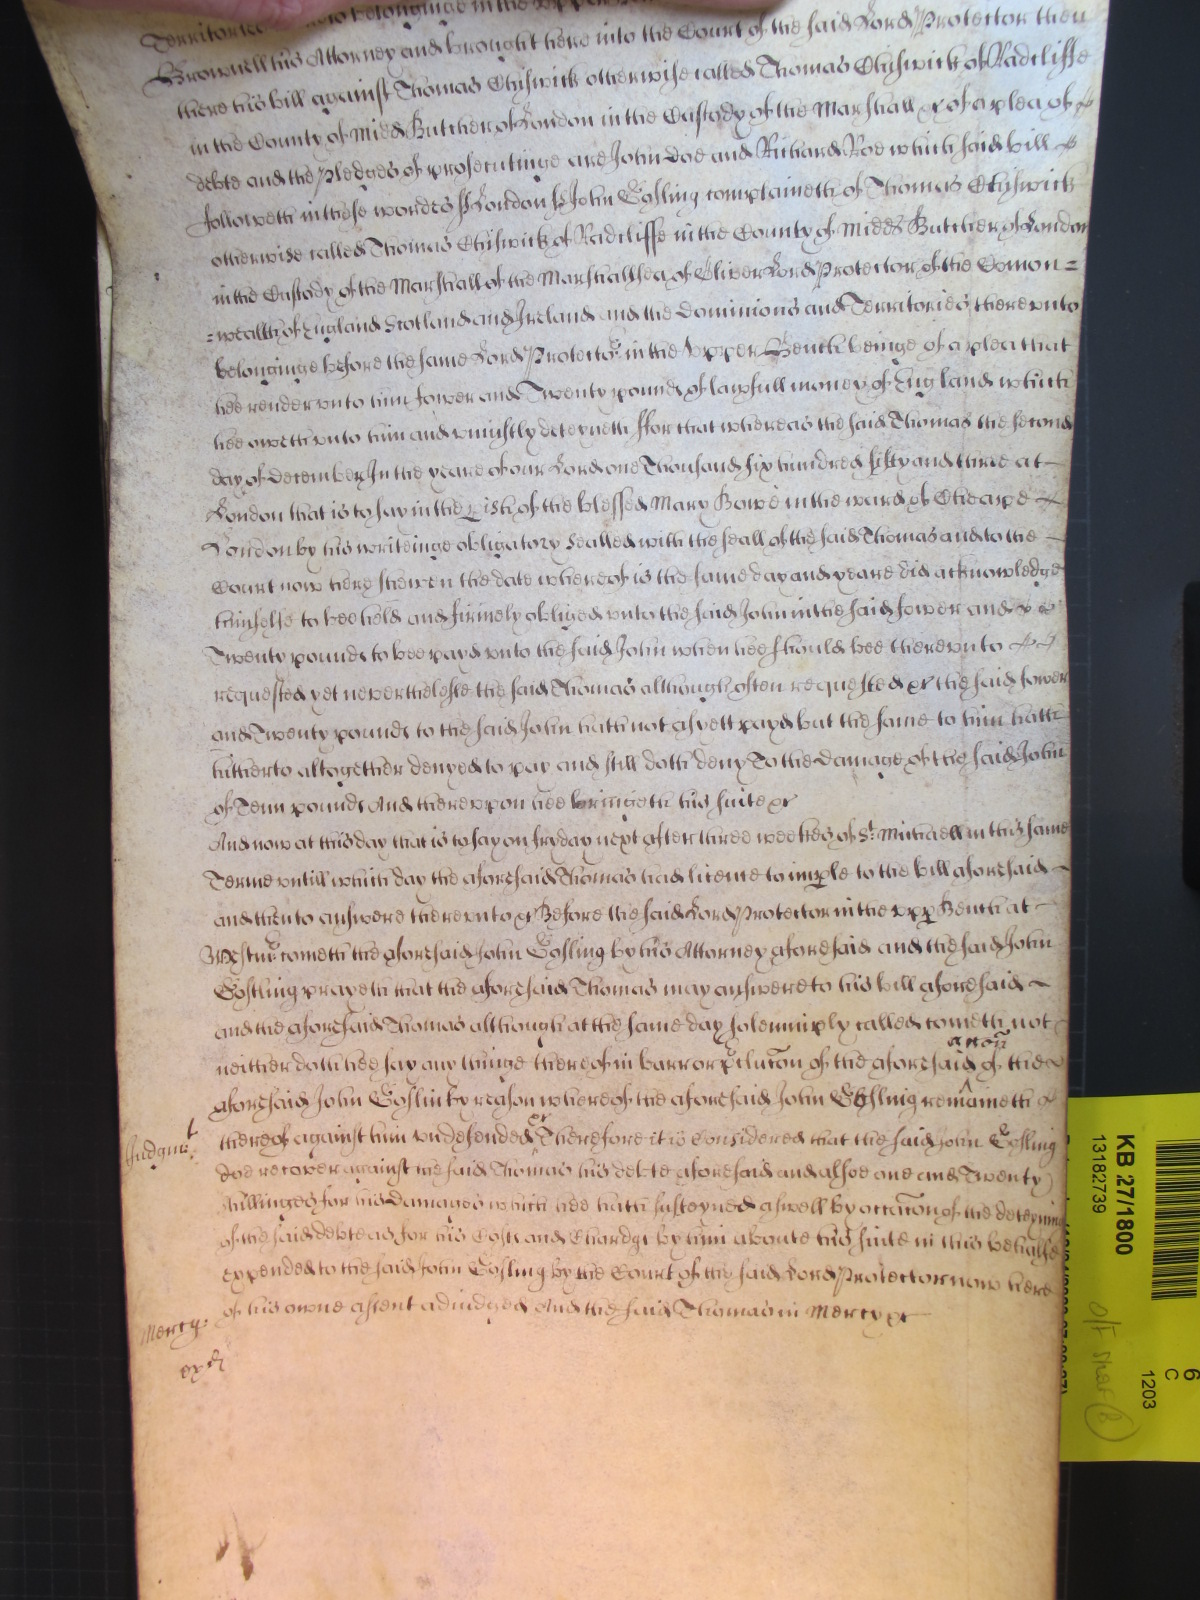 Territories thereunto belonginge in the upper
Brownell his Attorney and brought here into the Court of the said Lord Protector then
there his bill against Thomas Chiswick otherwise called Thomas Chiswick of Radcliffe
in the County of Midd Butcher of London in the Custody of the Marshall &c of a plea of
debte and the Pledges of prosecutinge are John Doe and Richard Roe which said bill
followeth in these wordes ss London ss John Gosling complaineth of Thomas Chiswick
otherwise called Thomas Chiswick of Radcliffe in the County of Midds Butcher of London
in the Custody of the Marshall of the Marshallsea of Oliver Lord Protector of the Comon=
=wealth of England Scotland and Ireland and the Dominions and Territories thereunto
belonginge before the same Lord Protector in the Upper Bench beinge of a plea that
hee render unto him fower and Twenty pounds of lawfull money of England which
hee oweth unto him and uniustly deteyneth ffor that whereas the said Thomas the second
day of December In the yeare of our Lord one Thousand six hundred fifty and three at
London that is to say in the Pish of the blessed Mary Bowe in the ward of Cheape
London by his writeinge obligatory Sealled with the seall of the said Thomas and to the
Court now here shewen the date whereof is the same day and yeare did acknowledge
himselfe to bee held and firmely obliged unto the said John in the said fower and
Twenty pounds to bee payd unto the said John when hee should bee thereunto
requested yet neverthelesse the said Thomas although often requested &c the said fower
and Twenty pounds to the said John hath not as yett payd but the same to him hath
hitherto altogether denyed to pay and still doth deny To the Damage of the said John
of Tenn pounds And thereupon hee bringeth his suite &c
And now at this day that is to say on fryday next after three weekes of St. Michaell in this same
Terme untill which day the aforesaid Thomas had licence to imple to the bill aforesaid
and then to answere thereunto &c Before the said Lord Protector in the upp Bench at
Westmr cometh the aforesaid John Gosling by his Attorney aforesaid and the said John
Gostling prayeth that the aforesaid Thomas may answere to his bill aforesaid
and the aforesaid Thomas although at the same day solemnply called cometh not
accon
neither doth hee say any thinge thereof in barr or pclucon of the aforesaid of the
aforesaid John Goslin by reason whereof the aforesaid John Gosling remaineth
Judgmt
thereof against him undefended &c Therefore it is Considered that the said John Gosling
doe recover against the said Thomas his debte aforesaid and alsoe one and Twenty
shillinges for his Damages which hee hath susteyned aswell by occacon of the deteyning
of the said debte as for his Costs and Chardge by him aboute his suite in this behalfe
expended to the said John Gosling by the Court of the said Lord Protector now here
of his owne assent adiudged And the said Thomas in Mercy &c
Mercy
KB 27/1800
13182739
O/F sheaf (B)
1203
C
6